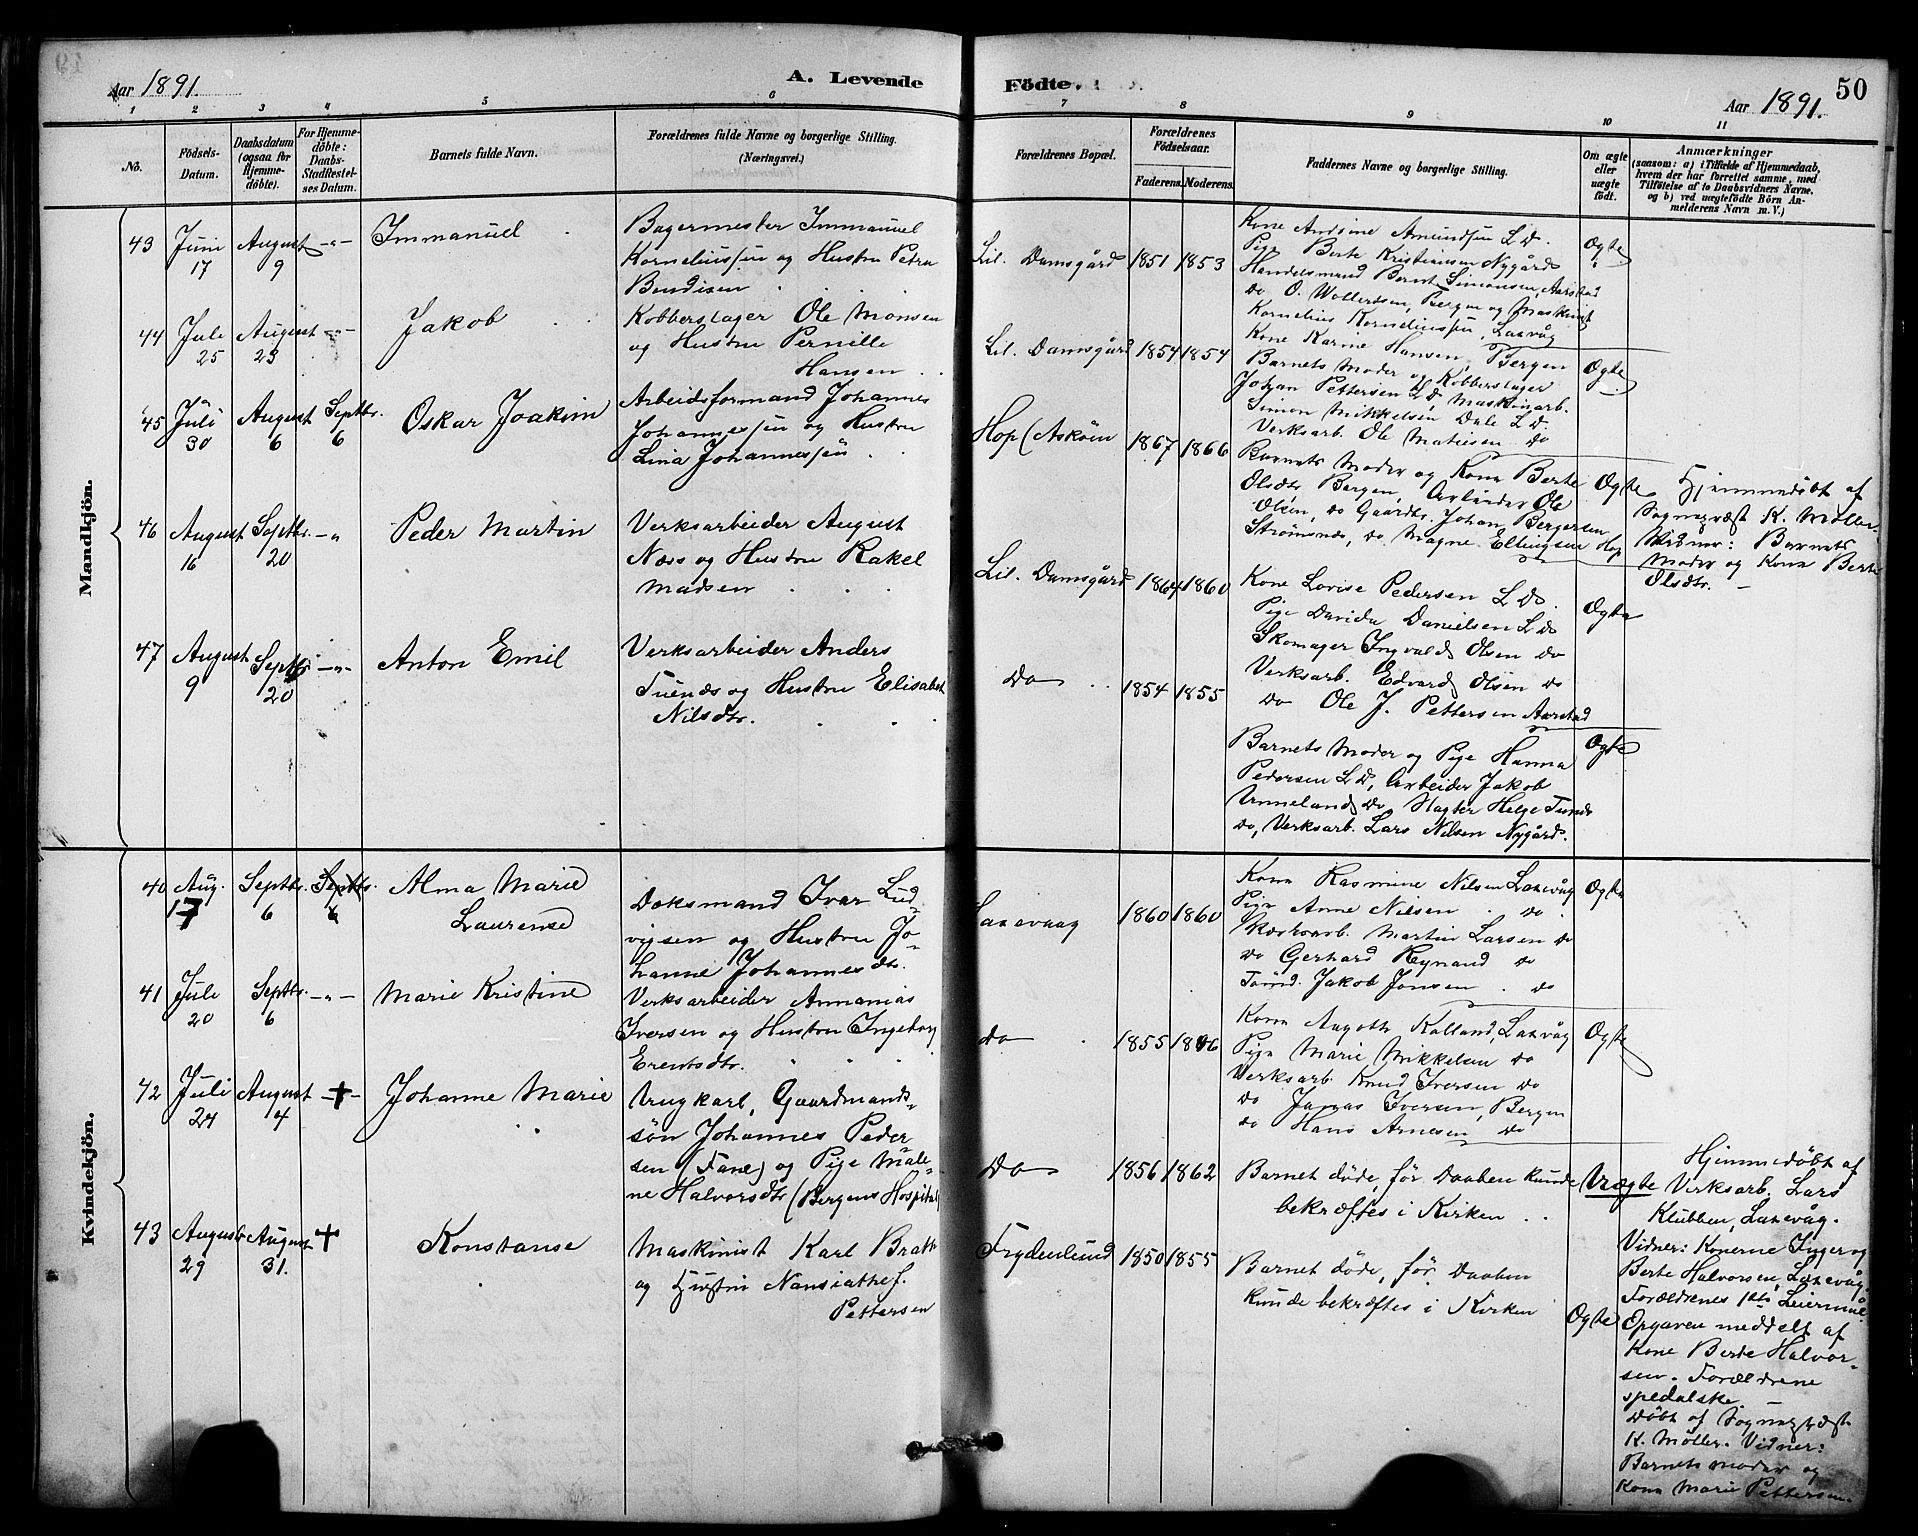 Aar 1891.
A. Levende
Födte.
Aar 1891.
50
1 2 3 4 5 6 7 8 9 10 11
No.
Födsels-
Datum.
Daabsdatum
(ogsaa for
Hjemme-
döbte).
For Hjemme-
döbte:
Daabs-
Stadfæstel-
ses Datum.
Barnets fulde Navn.
Forældrenes fulde Navne og borgerlige Stilling.
(Næringsvei.)
Forældrenes Bopæl.
Forældrenes
Födselsaar.
Faderens. Moderens.
Faddernes Navne og borgerlige Stilling.
Om ægte
eller
uægte
födt.
Anmærkninger
(saasom: a) i Tilfælde af Hjemmedaab,
hvem der har forrettet samme, med
Tilföielse af to Daabsvidners Navne.
og b) ved uægtefödte Börn An-
melderens Navn m. V.)
Mandkjön.
43
Juni
17
August
9
-"-
Immanuel
Bagermester Immanuel
Korneliussen og Hustru Petra
Bendixen
Lil. Damsgård
1851 1853
Kone Andsine Amundsen L D.
Pige Berte Kristiansen Nygård
Handelsmand Bernt Simonsen, Aarstad
do O. Wollertsen, Bergen og Maskinist
Kornelius Korneliussen, Laxvåg
Ægte
44
Jule
25
August
23
-"-
Jakob
Kobberslager Ole Monsen
og Hustru Pernille
Hansen
Lil. Damsgård
1854 1854
Kone Karne Hansen, Bergen
Barnets Moder og Kobberslager
Johan Pettersen L D, Maskinarb.
Simon Mikkelsen Dale L D.
Verksarb. Ole Matiesen do
Ægte
45
Juli
30
August
6
Septbr.
6
Oskar Joakim
Arbeidsformand Johannes
Johannessen og Hustru
Lina Johannessen
Hop (Asköen
1867 1866
Barnets Moder og Kona Berte
Olsdtr Bergen, Arbeider Ole
Olsen, do Gaardbr. Johan Bergersen
Strømsnes, do Magne Ellingsen Hop
Ægte
Hjemmedöbt af
Sogneprest K. Möller.
Vidner: Barnets
Moder og Kona Berte
Olsdtr.
46
August
16
Septbr.
20
-"
Peder Martin
Verksarbeider August
Næss og Hustru Rakel
Madsen
Lil. Damsgård
1864 1860
Kone Lovise Pedersen L D.
Pige Davida Danielsen L D
Skomager Ingvald Olsen do
Verksarb. Edvard Olsen do
do Ole J. Pettersen Aarstad
Ægte
47
August
9
Septbr.
20
-"-
Anton Emil
Verksarbeider Anders
Tuenes og Hustru Elisabet
Nilsdtr.
Do
1854 1855
Barnets Moder og Pige Hanna
Pedersen L D, Arbeider Jakob
Unneland do Vagter Helge Tunes
do, Verksarb. Lars Nilsen Nygård.
Ægte
Kvindekjön.
40
Aug.
17
Septbr.
6
Septbr.
6
Alma Marie
Laurense
Doksmand Ivar Lud-
vigsen og Hustru Jo-
hanne Johannesdtr.
Laxevaag
1860 1860
Kona Rasmine Nilsen Laxevåg
Pige Anne Nilsen do
Martin Larsen do
do Gerhard Reynand do
Tømd. Jakob Jonsen do
Ægte
41
Jule
20
Septbr.
6
-"-
Marie Kristine
Verksarbeider Annanias
Iversen og Hustru Ingeborg
Erentsdtr.
do
1855
Kona Augotte Kalland, Laxvåg
Pige Marie Mikkelsen do
Verksarb. Knud Iversen do
do Jonas Iversen, Bergen
do Hans Arnesen do
Ægte
42
Juli
24
August
4
-+-
Johanne Marie
Brugkarl, Gaardmands-
sön Johannes Peder
sen (Fane) og Pige Male-
ne Halvorsdtr (Bergens Hospital)
Do
1856 1862
Barnet döde, för Daaben kunde
bekræftes i Kirken
Uægte
Hjemmedöbt af
Verksarb. Lars
Klubben, Laxevåg.
Vidner: Konerne Inger og
Berte Halvorsen, Laxevåg
Forældrenes 1ste Leiermål
Opgaven meddelt af
Kone Berte Halvor-
sen. Forældrene
spedalske
43
August
29
August
31.
+
Konstanse
Maskinist Karl Bratt
og Hustru Nansiathe f.
Pettersen
Frydenlund
1850 1855
Barnet döde, för Daaben
kunde bekræftes i Kirken
Ægte
Döbt af Sogneprest
K. Möller. Vidner:
Barnets moder og
Kona Marie Pettersen.